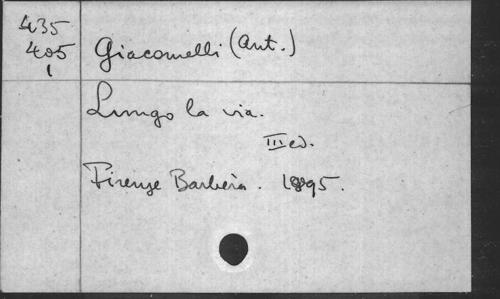 435
405
1
Giacomelli (Ant.)
Lungo la via.
III ed.
Firenze Barbèra. 1895.